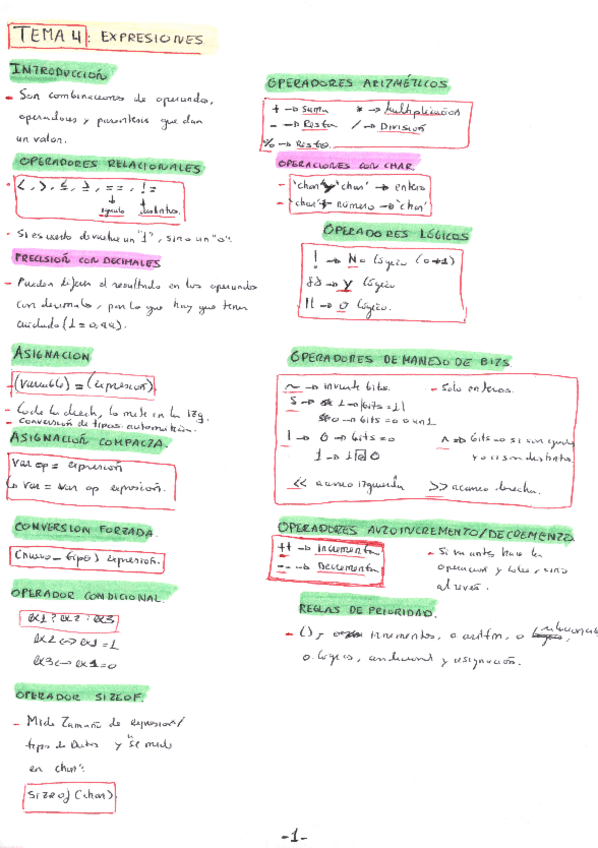 TEMA 4: EXPRESIONES
INTRODUCCIÓN
- Son combinaciones de operandos,
operadores y paréntesis que dan
un valor.
OPERADORES RELACIONALES
<, >, ≤, ≥, ==, !=
igualo distintos
- Si es cierto devuelve un "1", sino un "0".
PRECISIÓN CON DECIMALES
- Pueden el resultado en los operandos
con decimales, por lo que hay que tener
cuidado (1 = 0,99).
ASIGNACION
- (variable) = (expresión)
- lo de la derech, lo mete en la izq.
- conversión de tipos automática.
ASIGNACIÓN COMPACTA.
var op = expresión
var = var op expresión.
CONVERSION FORZADA.
(nuevo_tipo) expresión.
OPERADOR CONDICIONAL.
ex1 ? ex2 : ex3
ex2 <-> ex1 = 1
ex3 <-> ex1 = 0
OPERADOR SIZEOF.
- Mide Tamaño de expresión/
tipos de Datos y "se mide
en char".
sizeof (char)
OPERADORES ARITMÉTICOS
+ → suma * → Multiplicación
- → Resta / → División
% → Resto.
OPERACIONES CON CHAR.
- 'char' y 'char' → entero
- 'char' + número → 'char'
OPERADORES LÓGICOS
! → No lógico (0→1)
&& → y lógico
|| → o lógico.
OPERADORES DE MANEJO DE BITS.
~ → invierte bits. - Solo enteros.
& → 1 → bits = 11
0 → bits = 0 o un 1
| → 0 → bits = 0 ^ → bits = 0 si son iguales
1 → 1 0 y 1 si son distintos
<< avance izquierda >> avance derecha.
OPERADORES AUTOINCREMENTO/DECREMENTO
++ → incrementa - Si va antes hace la
-- → Decrementa operacion y luego, sino
al revés.
REGLAS DE PRIORIDAD.
- (), incrementos, o aritm, o relacional,
o. lógicos, condicional y asignación.
-1-